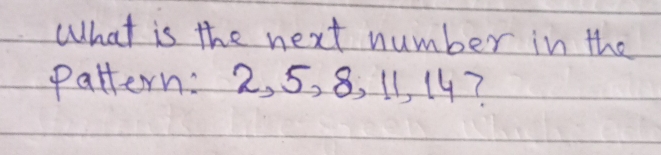 What is the next number in the
pattern: 2, 5, 8, 11, 14?